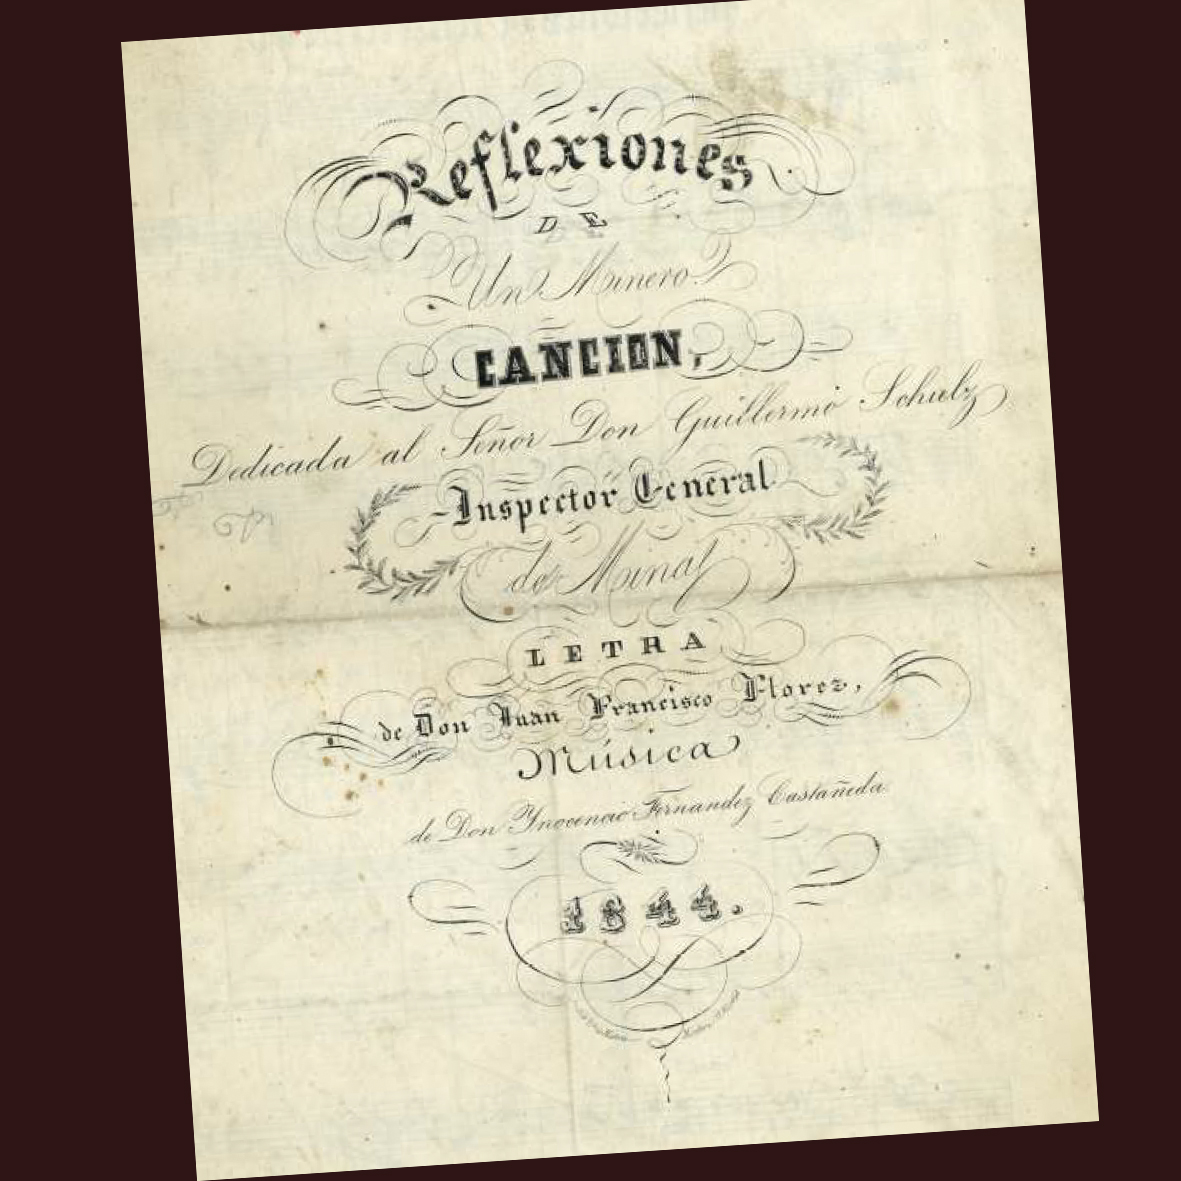 Reflexiones
DE
Un Minero
CANCION,
Dedicada al Señor Don Guillermo Schulz
Inspector General
de Minas
LETRA
de Don Juan Francisco Florez,
Música
de Don Ynocencio Fernandez Castañeda
1844.